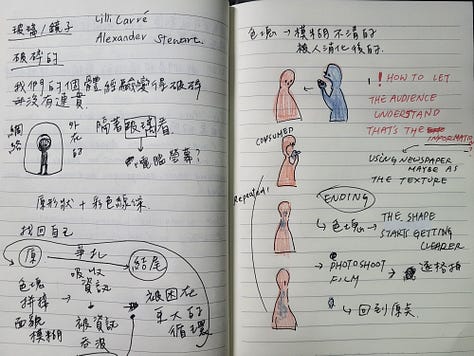 玻璃/鏡子
Lilli Carré
Alexander Stewart
破碎的
我們的個體經驗變得破碎
沒有連貫.
網絡
外在的
隔著玻璃看
電腦螢幕?
原形狀 + 彩色線條.
找回自己
原
掙扎
結尾
色塊
拼接
面貌
模糊
吸收
資訊
被資訊
吞沒
被困在
更大的
循環
色塊 → 模糊不清的
被人消化後的.
! HOW TO LET
THE AUDIENCE
UNDERSTAND
THAT'S THE INFORMATION
CONSUMED
USING NEWSPAPER
MAYBE AS
THE TEXTURE
Repeated!
ENDING
色塊 → THE SHAPE
START GETTING
CLEARER
PHOTOSHOOT
FILM
→ 逐格拍
回到原点